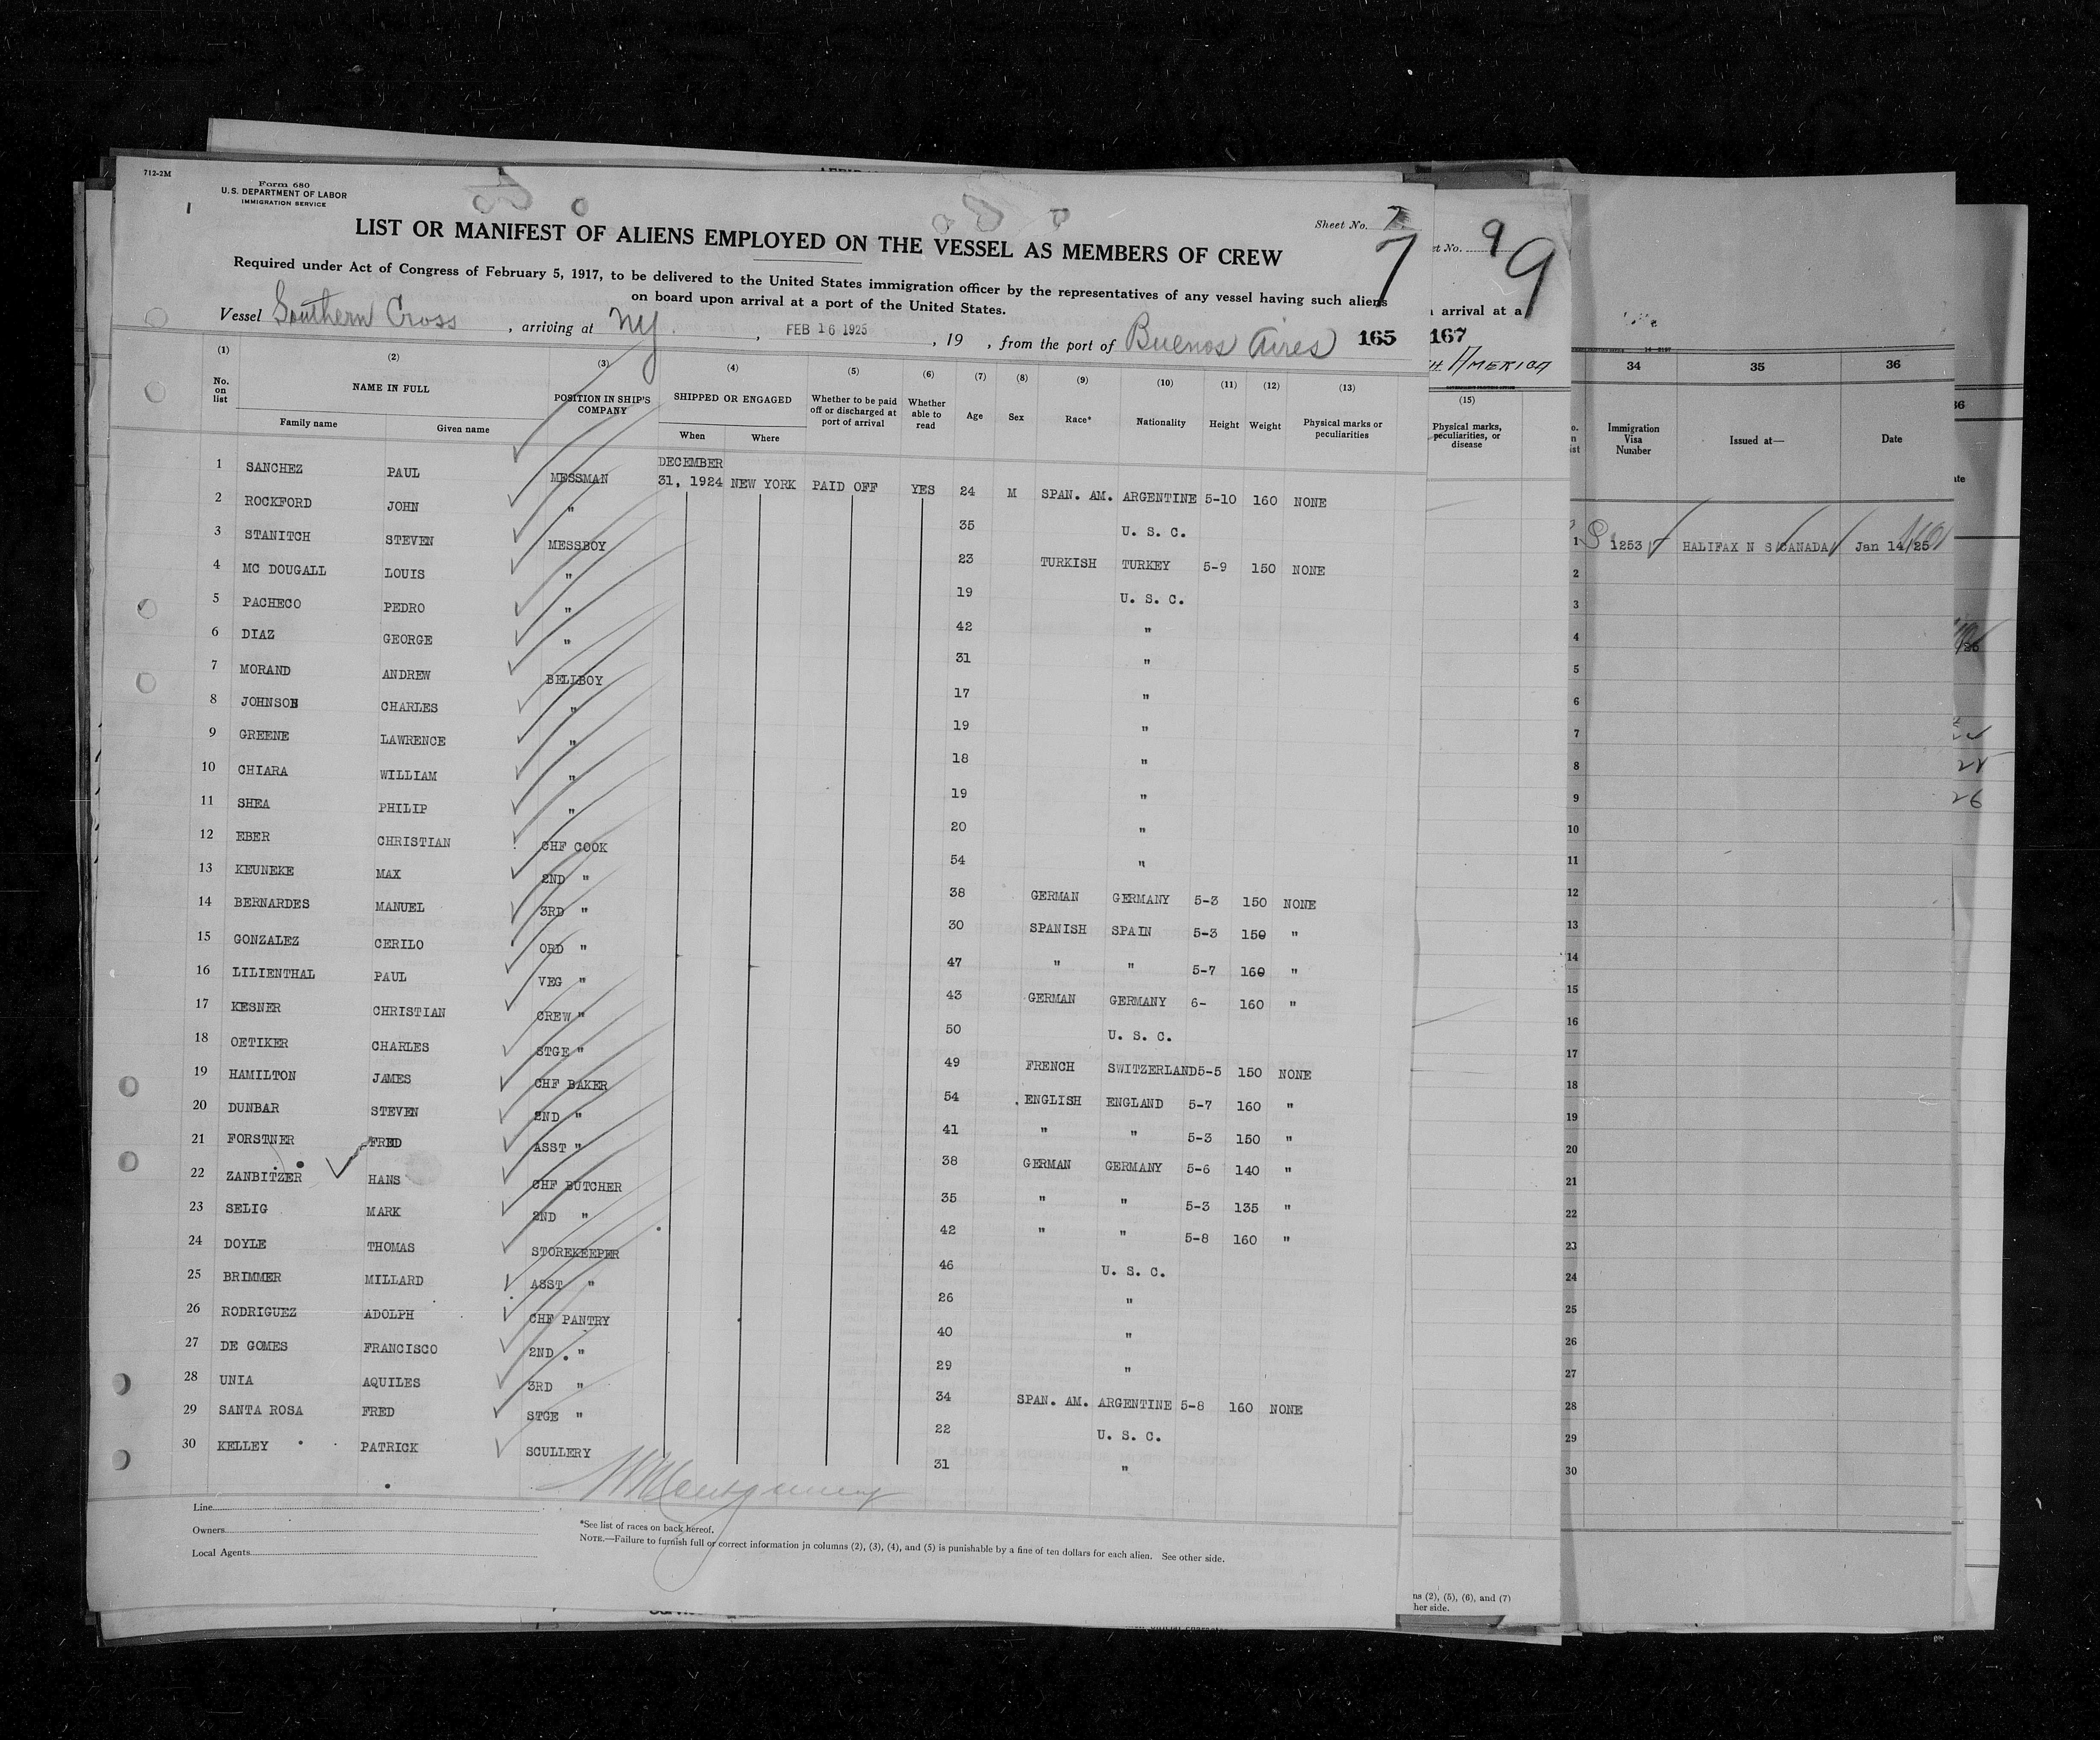 712-2M
Form 680
U.S. DEPARTMENT OF LABOR
IMMIGRATION SERVICE
Sheet No. 7
7
LIST OR MANIFEST OF ALIENS EMPLOYED ON THE VESSEL AS MEMBERS OF CREW
Required under Act of Congress of February 5, 1917, to be delivered to the United States immigration officer by the representatives of any vessel having such aliens
on board upon arrival at a port of the United States.
Vessel Southern Cross, arriving at NY., FEB 16 1925, 19 , from the port of Buenos Aires 165
(1) (2) (3) (4) (5) (6) (7) (8) (9) (10) (11) (12) (13)
No. on list NAME IN FULL POSITION IN SHIP'S COMPANY SHIPPED OR ENGAGED Whether to be paid off or discharged at port of arrival Whether able to read Age Sex Race* Nationality Height Weight Physical marks or peculiarities
Family name Given name When Where
1 SANCHEZ PAUL MESSMAN DECEMBER 31, 1924 NEW YORK PAID OFF YES 24 M SPAN. AM. ARGENTINE 5-10 160 NONE
2 ROCKFORD JOHN " 35 U. S. C.
3 STANITCH STEVEN MESSBOY 23 TURKISH TURKEY 5-9 150 NONE
4 MC DOUGALL LOUIS " 19 U. S. C.
5 PACHECO PEDRO " 42 "
6 DIAZ GEORGE " 31 "
7 MORAND ANDREW BELLBOY 17 "
8 JOHNSON CHARLES " 19 "
9 GREENE LAWRENCE " 18 "
10 CHIARA WILLIAM " 19 "
11 SHEA PHILIP " 20 "
12 EBER CHRISTIAN CHF COOK 54 "
13 KEUNEKE MAX 2ND " 38 GERMAN GERMANY 5-3 150 NONE
14 BERNARDES MANUEL 3RD " 30 SPANISH SPAIN 5-3 150 "
15 GONZALEZ CERILO ORD " 47 " " 5-7 160 "
16 LILIENTHAL PAUL VEG " 43 GERMAN GERMANY 6- 160 "
17 KESNER CHRISTIAN CREW " 50 U. S. C.
18 OETIKER CHARLES STGE " 49 FRENCH SWITZERLAND 5-5 150 NONE
19 HAMILTON JAMES CHF BAKER 54 ENGLISH ENGLAND 5-7 160 "
20 DUNBAR STEVEN 2ND " 41 " " 5-3 150 "
21 FORSTNER FRED ASST " 38 GERMAN GERMANY 5-6 140 "
22 ZANBITZER HANS CHF BUTCHER 35 " " 5-3 135 "
23 SELIG MARK 2ND " 42 " " 5-8 160 "
24 DOYLE THOMAS STOREKEEPER 46 U. S. C.
25 BRIMMER MILLARD ASST " 26 "
26 RODRIGUEZ ADOLPH CHF PANTRY 40 "
27 DE GOMES FRANCISCO 2ND " 29 "
28 UNIA AQUILES 3RD " 34 SPAN. AM. ARGENTINE 5-8 160 NONE
29 SANTA ROSA FRED STGE " 22 U. S. C.
30 KELLEY PATRICK SCULLERY 31 "
Line
Owners
Local Agents
*See list of races on back hereof.
NOTE.—Failure to furnish full or correct information in columns (2), (3), (4), and (5) is punishable by a fine of ten dollars for each alien. See other side.
No. 9
9
arrival at a
167
AMERICA
(15)
Physical marks, peculiarities, or disease
ns (2), (5), (6), and (7)
her side.
34 35 36
Immigration Visa Number Issued at— Date
1 1253 HALIFAX N S CANADA Jan 14/25
2
3
4
5
6
7
8
9
10
11
12
13
14
15
16
17
18
19
20
21
22
23
24
25
26
27
28
29
30
26